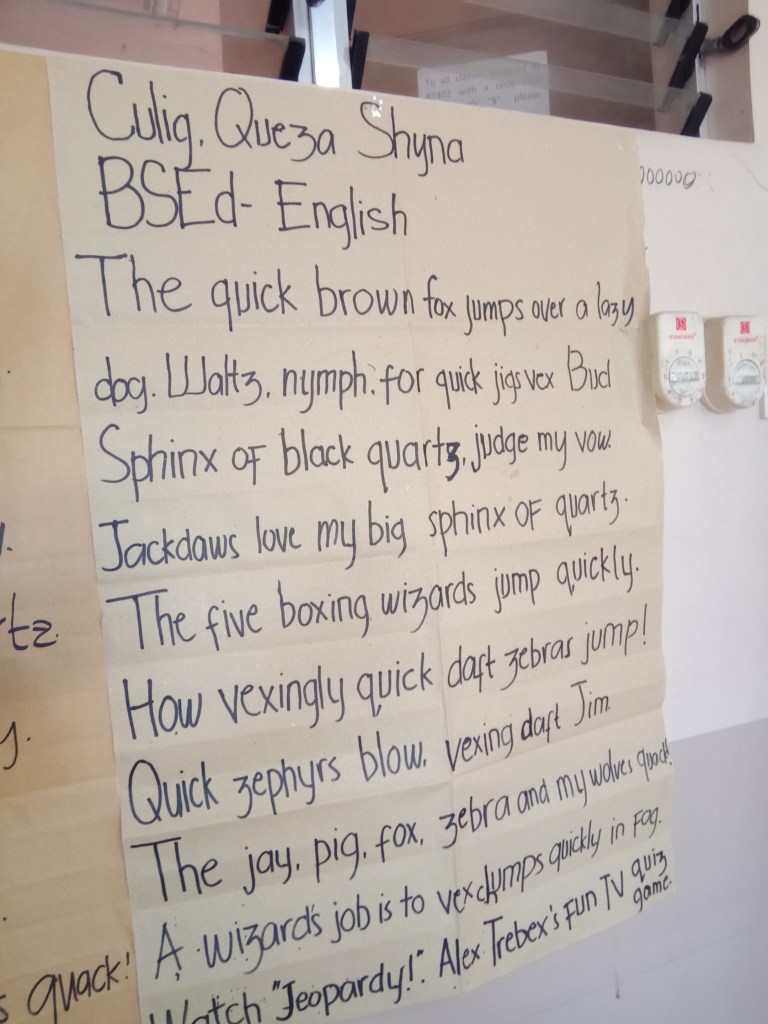 Culig, Queza Shyna
BSEd- English
The quick brown fox jumps over a lazy
dog. Waltz, nymph, for quick jigs vex Bud
Sphinx of black quartz, judge my vow.
Jackdaws love my big sphinx of quartz.
The five boxing wizards jump quickly.
How vexingly quick daft zebras jump!
Quick zephyrs blow, vexing daft Jim
The jay, pig, fox, zebra and my wolves quack!
A wizard's job is to vex chumps quickly in Fog.
Watch "Jeopardy!". Alex Trebex's Fun TV quiz
game.
tz.
y.
s quack!